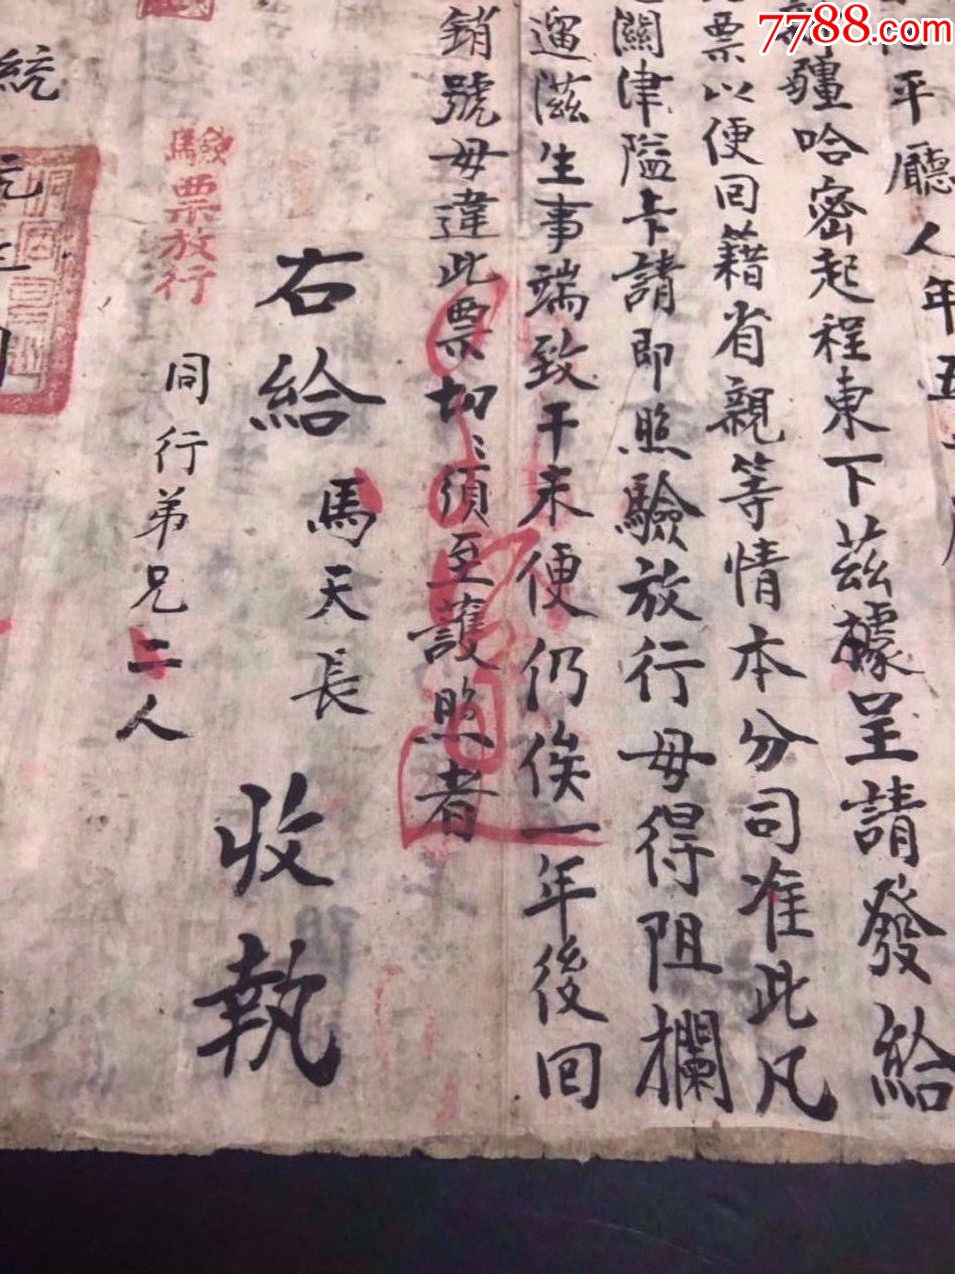 7788.com
平廳人年五
疆哈密起程東下茲據呈請發給
票以便回籍省親等情本分司准此凡
關津隘卡請即照驗放行毋得阻攔
遛滋生事端致干未便仍俟一年後回
銷號毋違此票切〻須至護照者
右給 馬天長 收執
同行弟兄二人
驗票放行
統元年 月